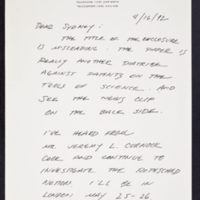 4/16/92
DEAR SYDNEY:
THE TITLE OF THE ENCLOSURE
IS MISLEADING. THE PAPER IS
REALLY ANOTHER DIATRIBE
AGAINST PATENTS ON THE
TOOLS OF SCIENCE. AND
SEE THE NEWS CLIP
ON THE BACK SIDE.
I'VE HEARD FROM
MR JEREMY L. CURNOCK
COOK AND CONTINUE TO
INVESTIGATE THE ROTHSCHILD
NOTION. I'LL BE IN
LONDON MAY 25-26